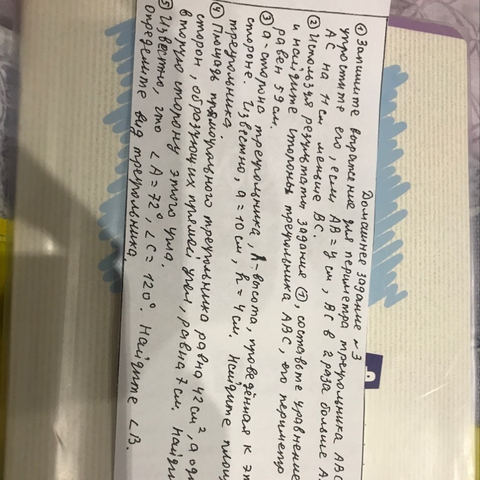 Домашнее задание №3
① Запишите выражение для периметра треугольника ABC
упростите его, если AB = y см, BC в 2 раза больше A
AC на 11 см меньше BC.
② Используя результаты задания ①, составьте уравнение
и найдите стороны треугольника ABC, его периметр
равен 59 см.
③ a - сторона треугольника, h - высота, проведённая к э
стороне. Известно, a = 10 см, h = 4 см. Найдите площ
треугольника
④ Площадь прямоугольного треугольника равна 42 см², а од
сторон, образующих прямой угол, равна 7 см. Найди
вторую сторону этого угла.
⑤ Известно, что ∠A = 72°, ∠C = 120°. Найдите ∠B.
Определите вид треугольника